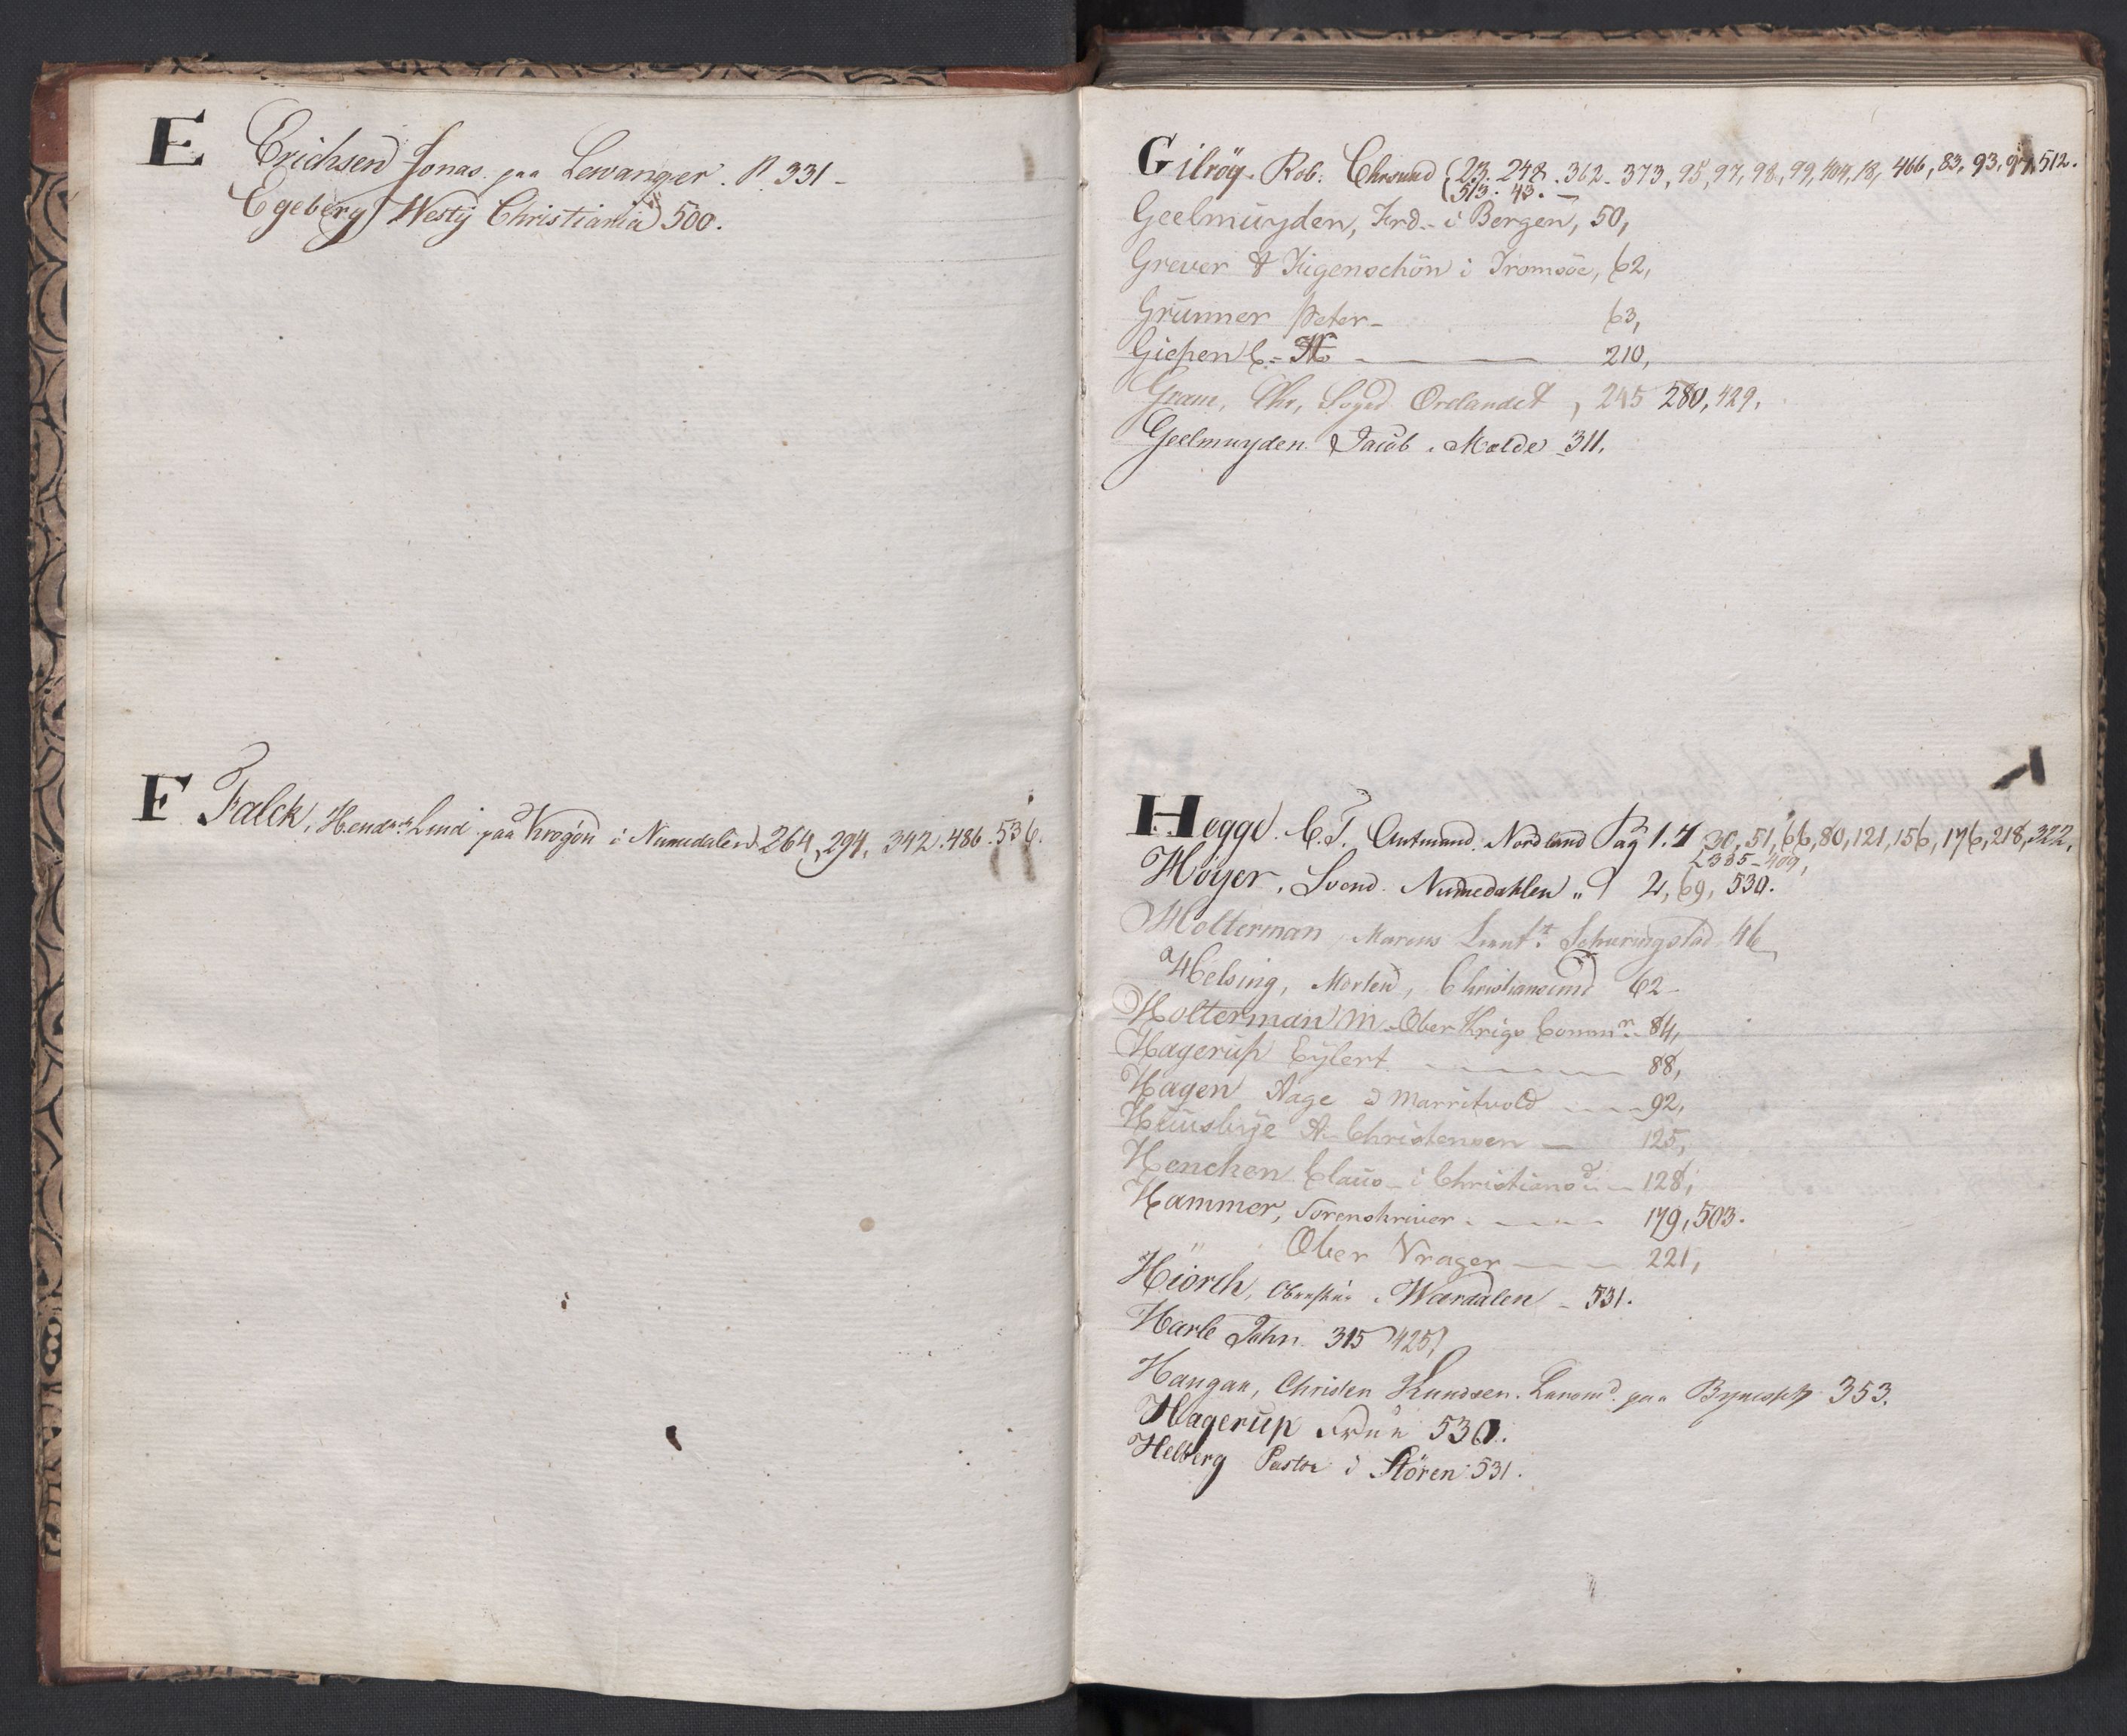 E Erichsen Jonas. paa Lewanger. P. 331 -
Egeberg Westÿ Christiania 500.
F Falck, Hendr: Lind paa Krogøn i Numedalen 264, 294, 342. 486. 536.
Gilröÿ. Rob: Chrsund 23. 248. 362. 373, 95, 97, 98, 99, 404, 18, 466, 83, 93, 97, 512.
513. 43. —
Geelmuÿden, Frd. i Bergen, 50,
Grever & Fügenschön i Tromsöe, 62,
Grunner Peter - 63,
Giesen C. 210,
Gram, Chr, Foged Orelandet, 245 280, 429.
Geelmuyden Jacob. Molde 311.
H Hegge. C. T. Amtmand. Nordland Pag 1. 7, 30, 51, 66, 80, 121, 156, 176, 218, 322,
385 - 409,
Höÿer, Svend. Numedahlen „ 2, 69, 530.
Holterman, Marcus Lieut:t 46,
Helsing, Morten, Christiansund 62 -
Holterman M. Ober Krigs Comm:r 84,
Hagerup Eÿlert 88,
Hagen Aage Marritvold 92,
Huusbÿe A. Christensen — 125,
Hencken Claus i Christians:d 128,
Hammer, Sorenskriver 179, 503.
" Ober Vrager 221,
Hiorth, Wærdalen - 531.
Harle John 315 425,
Haugan, Christen Knudsen. paa Bynesset 353.
Hagerup 530.
Helberg Pastor i Stören 531.